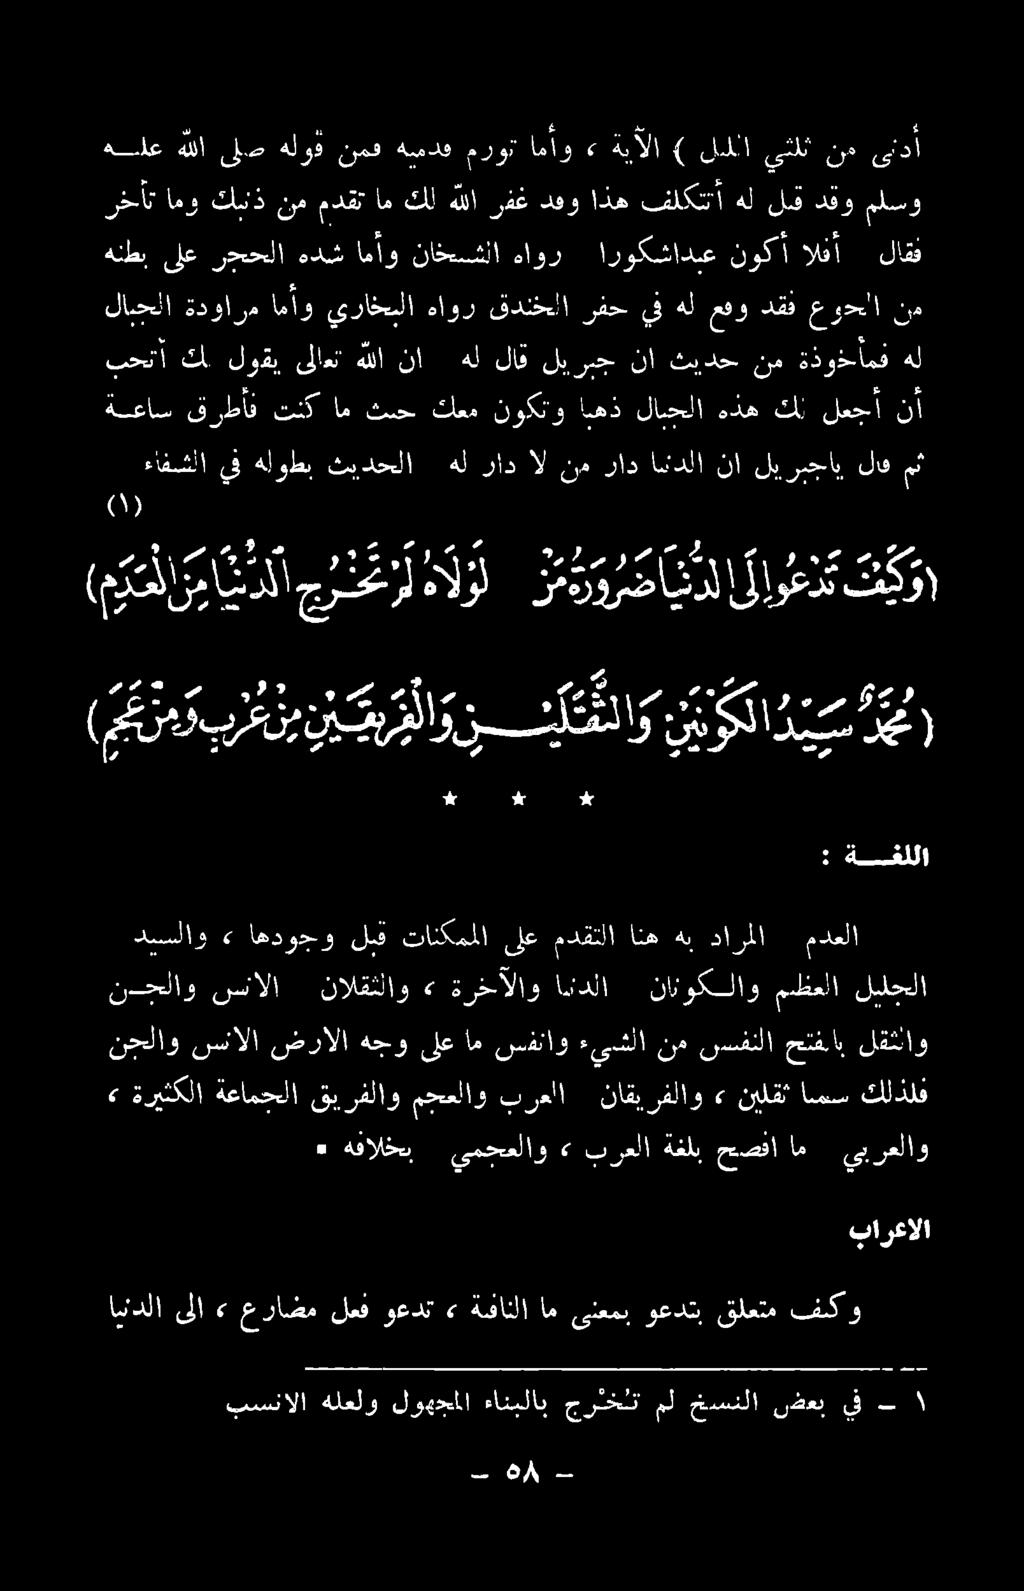 أدنى من ثلثي الليل } الآية ، وأما تورم قدميه فمن قوله صلى الله عليه
وسلم وقد قيل له أتتكلف هذا وقد غفر الله لك ما تقدم من ذنبك وما تأخر
فقال أفلا أكون عبداشكورا رواه الشيخان وأما شده الحجر على بطنه
من الجوع فقد وقع له في حفر الخندق رواه البخاري وأما مراودة الجبال
له فمأخوذة من حديث ان جبريل قال له ان الله تعالى يقول لك أتحب
أن أجعل لك هذه الجبال ذهبا وتكون معك حيث ما كنت فأطرق ساعة
ثم قال ياجبريل ان الدنيا دار من لا دار له الحديث بطوله في الشفاء
(١)
(وَكَيْفَ تَدْعُوا إِلَى الدُّنْيَا ضَرُورَةُ مَنْ لَوْلَاهُ لَمْ تَخْرُجِ الدُّنْيَا مِنَ الْعَدَمِ)
(مُحَمَّدٌ سَيِّدُ الْكَوْنَيْنِ وَالثَّقَلَيْنِ وَالْفَرِيقَيْنِ مِنْ عُرْبٍ وَمِنْ عَجَمِ)
★ ★ ★
اللغة :
العدم المراد به هنا التقدم على الممكنات قبل وجودها ، والسيد
الجليل العظيم والكونان الدنيا والآخرة ، والثقلان الانس والجن
والثقل بالفتح النفيس من الشيء وانفس ما على وجه الارض الانس والجن
فلذلك سميا ثقلين ، والفريقان العرب والعجم والفريق الجماعة الكثيرة ،
والعربي ما افصح بلغة العرب ، والعجمي بخلافه ▪
الاعراب
وكيف متعلق بتدعو بمعنى ما النافية ، تدعو فعل مضارع ، الى الدنيا
١ – في بعض النسخ لم تُخْرج بالبناء للمجهول ولعله الانسب
– ٥٨ –